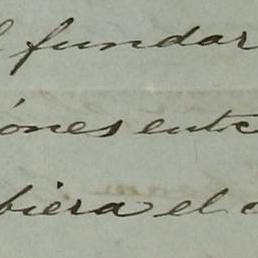 l fundar
iónes entre
biera el c